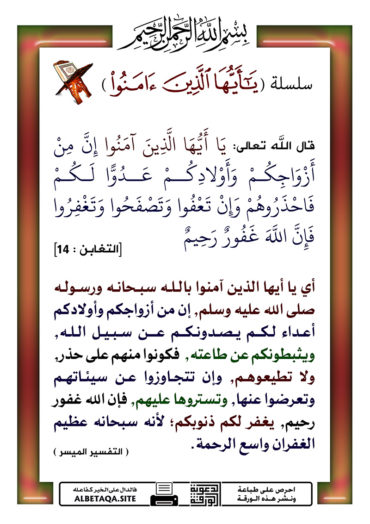 بسم الله الرحمن الرحيم
سلسلة ( يَـٰٓأَيُّهَا ٱلَّذِينَ ءَامَنُوا۟ )
قال الله تعالى: يَا أَيُّهَا الَّذِينَ آمَنُوا إِنَّ مِنْ
أَزْوَاجِكُـمْ وَأَوْلَادِكُـمْ عَـدُوًّا لَـكُـمْ
فَاحْذَرُوهُمْ وَإِنْ تَعْفُوا وَتَصْفَحُوا وَتَغْفِرُوا
فَإِنَّ اللَّهَ غَفُورٌ رَحِيمٌ
[التغابن : 14]
أي يا أيها الذين آمنوا بالله سبحانه ورسوله
صلى الله عليه وسلم, إن من أزواجكم وأولادكم
أعداء لكم يصدونكم عن سبيل الله,
ويثبطونكم عن طاعته, فكونوا منهم على حذر,
ولا تطيعوهم, وإن تتجاوزوا عن سيئاتهم
وتعرضوا عنها, وتستروها عليهم, فإن الله غفور
رحيم, يغفر لكم ذنوبكم؛ لأنه سبحانه عظيم
الغفران واسع الرحمة.
( التفسير الميسر )
احرص على طباعة
ونشر هذه الورقة
فالدال على الخير كفاعله
ALBETAQA.SITE